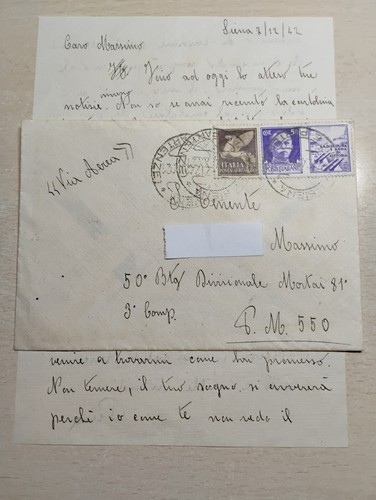 Siena 7/12/42
Caro Massimo
Fino ad oggi ho atteso tue
notizie. Non so se avrai ricevuto la cartolina
"Via Aerea"
PARTENZE
SIENA
ITALIA
POSTA AEREA
S. Tenente
Massimo
50° Btg Divisionale Mortai 81
3° Comp.
P. M. 550
venire a trovarmi come hai promesso.
Non temere, il tuo sogno si avvererà
perché io come te non vedo il